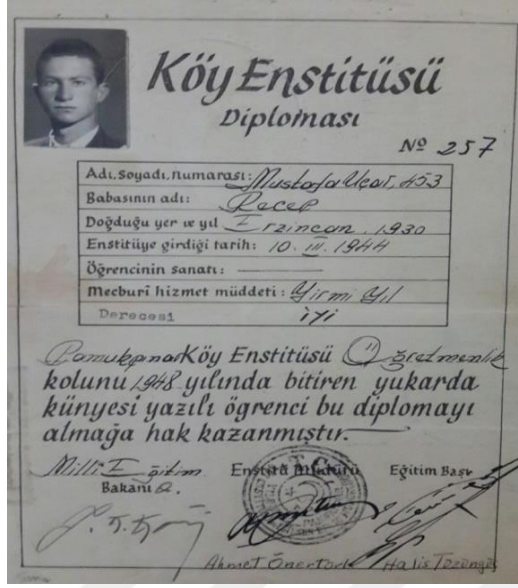 Köy Enstitüsü
Diploması
Nº 257
Adı, Soyadı, numarası: Mustafa Uçar, 453
Babasının adı: Recep
Doğduğu yer ve yıl Erzincan. 1930
Enstitüye girdiği tarih: 10. III. 1944
Öğrencinin sanatı:
Mecburî hizmet müddeti: Yirmi Yıl
Derecesi iyi
Pamukpınar Köy Enstitüsü Öğretmenlik
kolunu 1948 yılında bitiren yukarda
künyesi yazılı öğrenci bu diplomayı
almağa hak kazanmıştır.
Millî Eğitim Enstitü Müdürü Eğitim Başı
Bakanı a.
T.C.
Ahmet Önertürk Halis